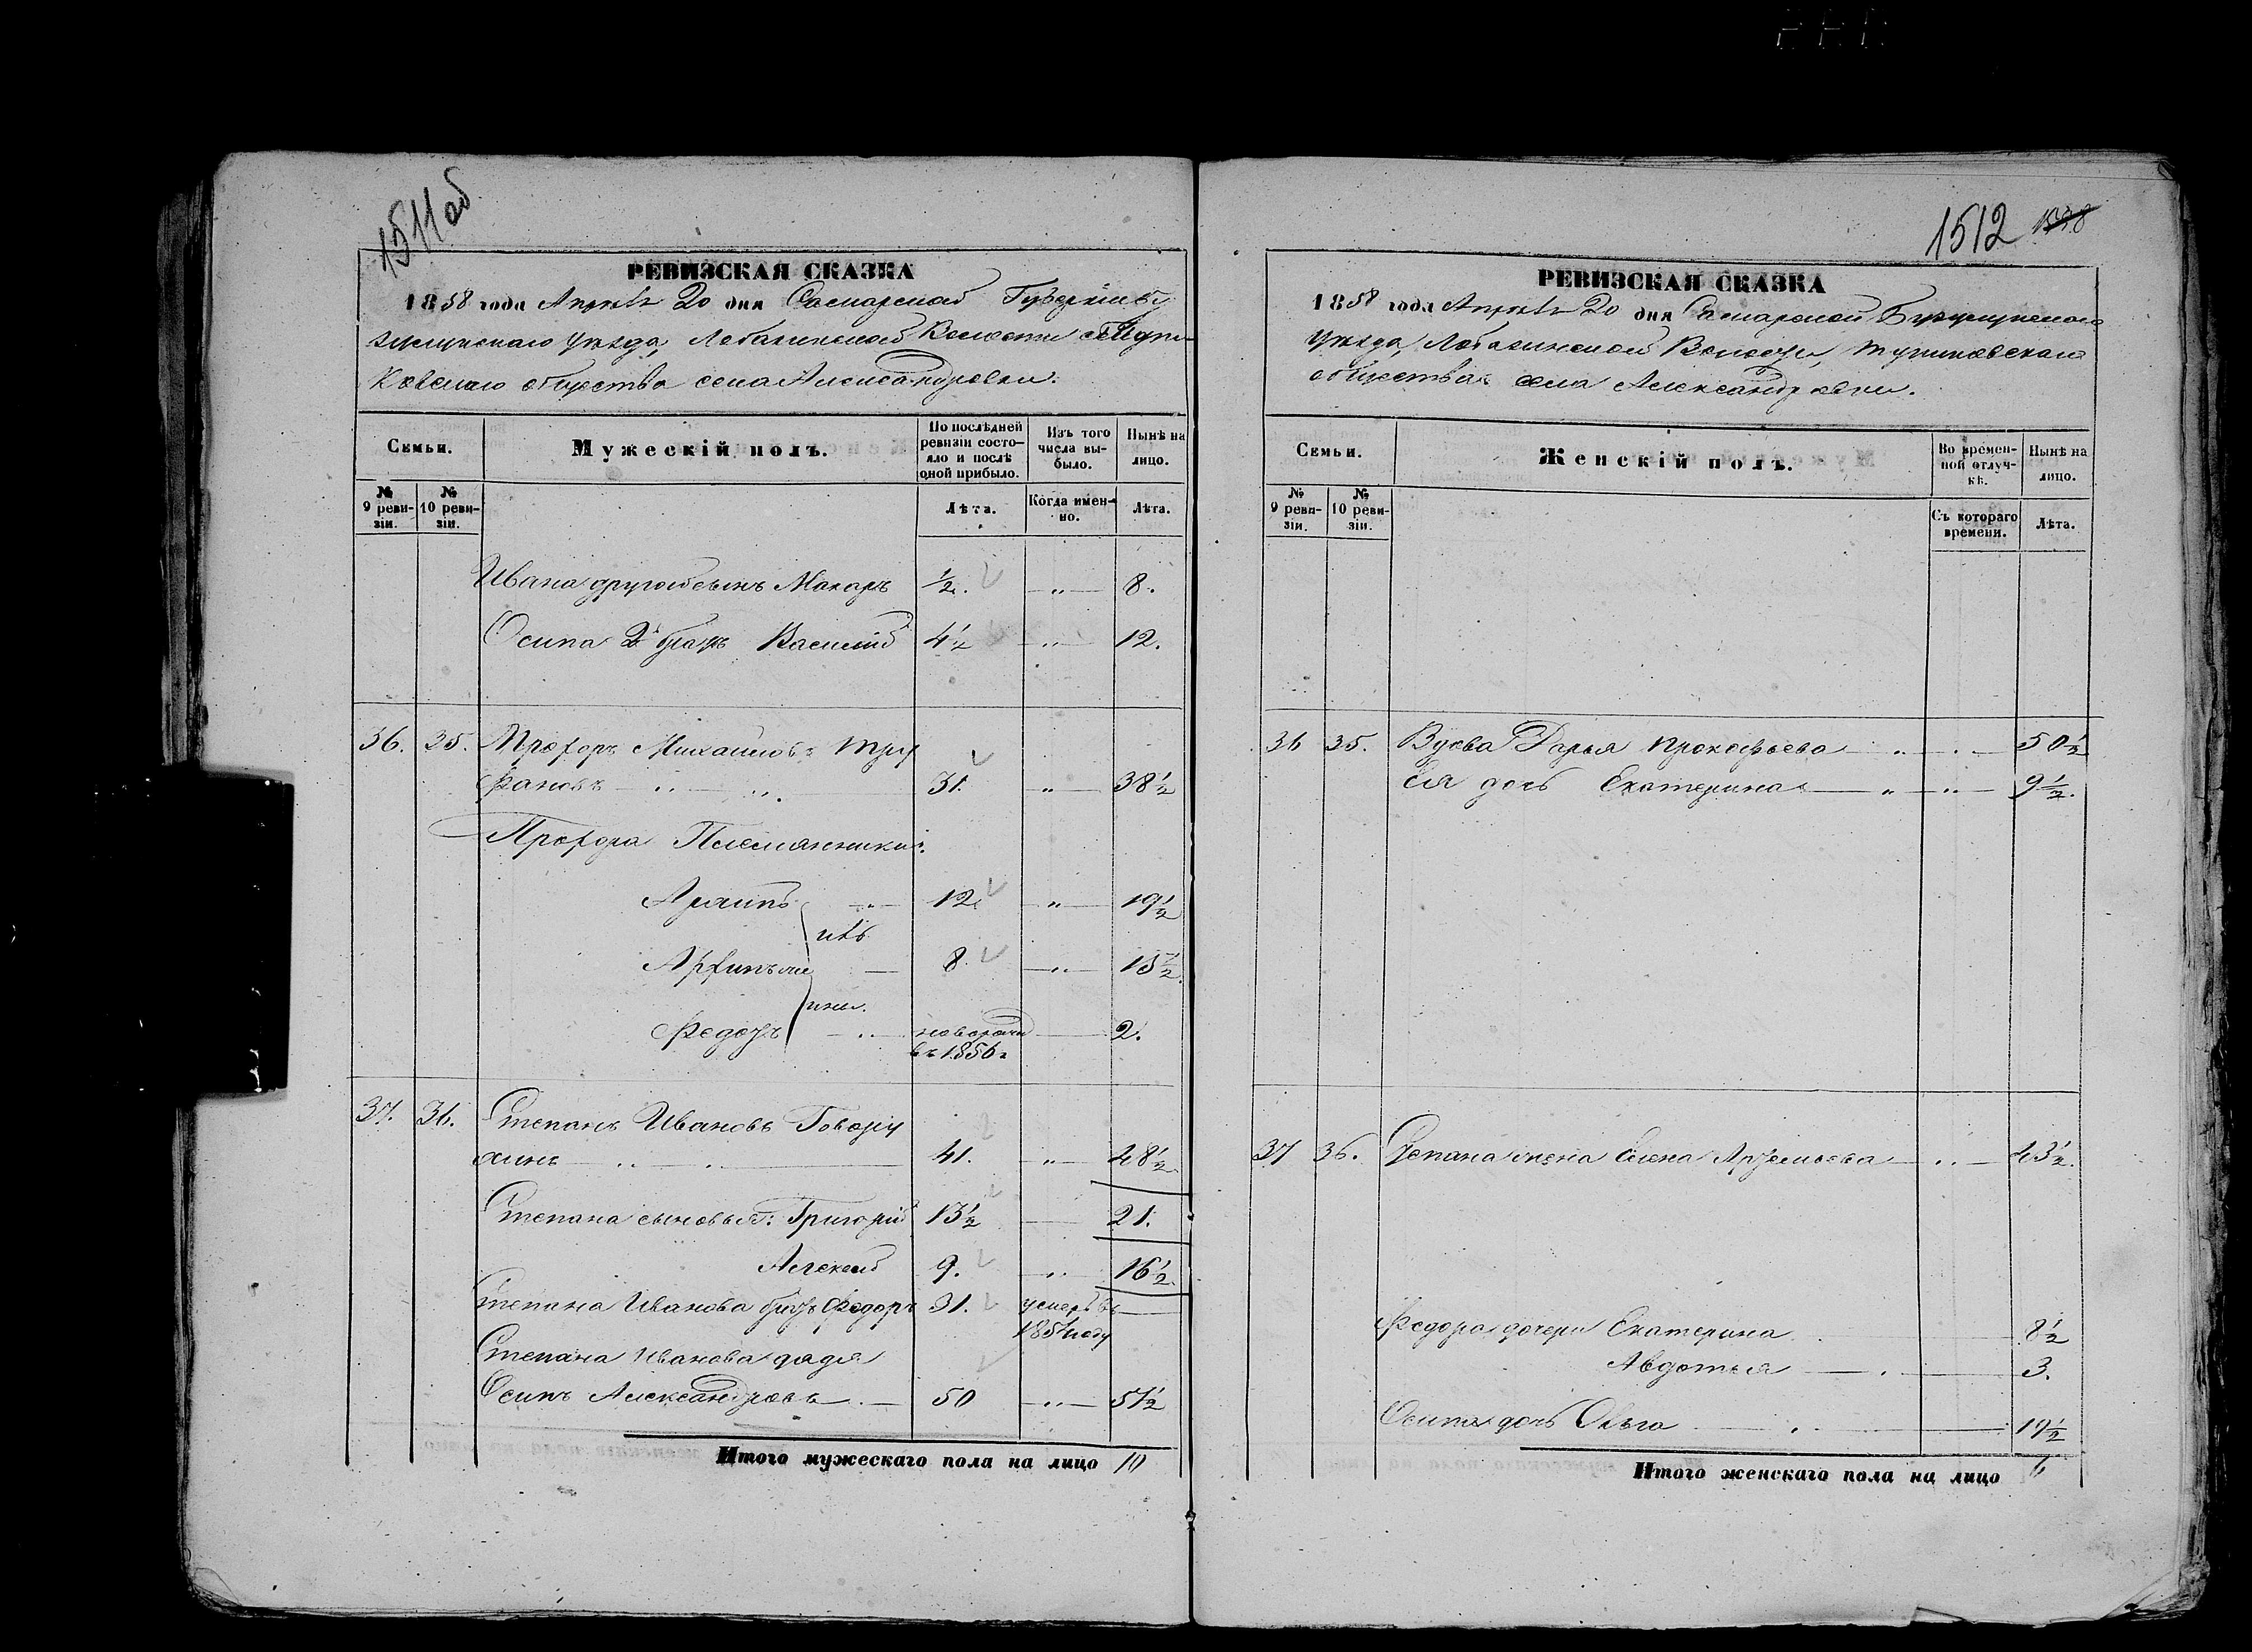 1511об
РЕВИЗСКАЯ СКАЗКА
1858 года Апрѣля 20 дня Самарской Губерніи Бу
зулукскаго Уѣзда, Лобазинской Волости
ковскаго общества села Александровки.
Семьи.
Мужескій полъ.
По послѣдней ревизіи состо-
яло и послѣ оной прибыло.
Изъ того числа вы-
было.
Нынѣ на лицо.
№ 9 реви-
зіи.
№ 10 реви-
зіи.
Лѣта.
Когда имен-
но.
Лѣта.
Ивана другой сынъ Макаръ ½. „ 8.
Осипа 2й братъ Василій 4½ „ 12.
36. 35. Прохоръ Михайловъ Тру
фановъ 31. „ 38½
Прохора Племянники:
12. „ 19½
Архипъ 8. „ 15½
Федотъ новорожд 2.
въ 1856г
37. 36. Степанъ Ивановъ Говору
хинъ 41. „ 48½
Степана сыновья: Григорій 13½ 21.
Алексей 9. „ 16½
Степана Иванова братъ Федоръ 31. умеръ въ
185 году
Степана Иванова дядя
Осипъ Александровъ 50 „ 57½
Итого мужескаго пола на лицо 10
1512
РЕВИЗСКАЯ СКАЗКА
1858 года Апрѣля 20 дня Самарской Бузулукскаго
Уѣзда, Лобазинской Волости,
общества села Александровки.
Семьи.
Женскій полъ.
Во времен-
ной отлуч-
кѣ.
Нынѣ на лицо.
№ 9 реви-
зіи.
№ 10 реви-
зіи.
Съ котораго времени.
Лѣта.
36 35. Вдова Дарья Прокофьева „ 50½
Ея дочь Екатерина „ 9½.
37 36. Степана жена Елена Артемьева 43½.
Федора дочери Екатерина 8½
Авдотья 3.
Осипа дочь Ольга 19½
Итого женскаго пола на лицо 6